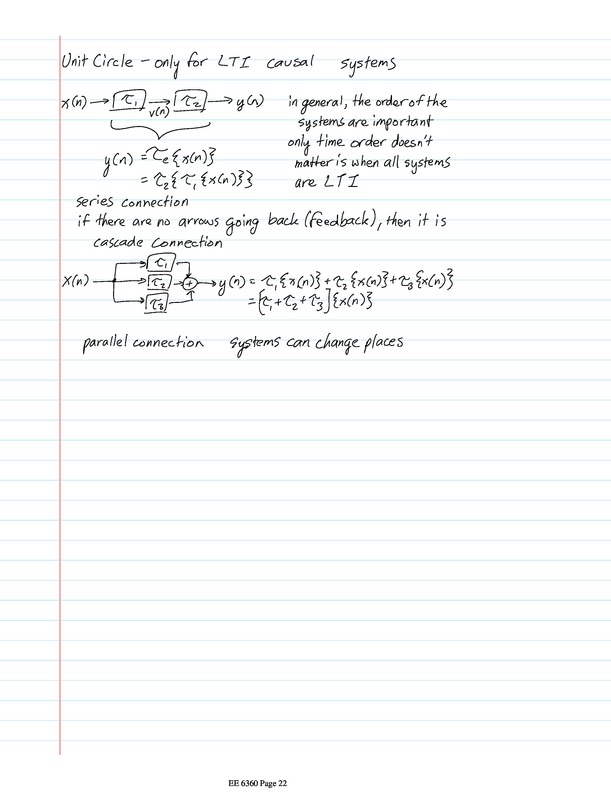 Unit Circle - only for LTI causal systems
x(n) → τ₁ → v(n) τ₂ → y(n) in general, the order of the
systems are important
only time order doesn't
y(n) = τe{x(n)} matter is when all systems
= τ₂{τ₁{x(n)}} are LTI
series connection
if there are no arrows going back (feedback), then it is
cascade connection
τ₁
x(n) τ₂ + → y(n) = τ₁{x(n)} + τ₂{x(n)} + τ₃{x(n)}
τ₃ = [τ₁ + τ₂ + τ₃]{x(n)}
parallel connection systems can change places
EE 6360 Page 22